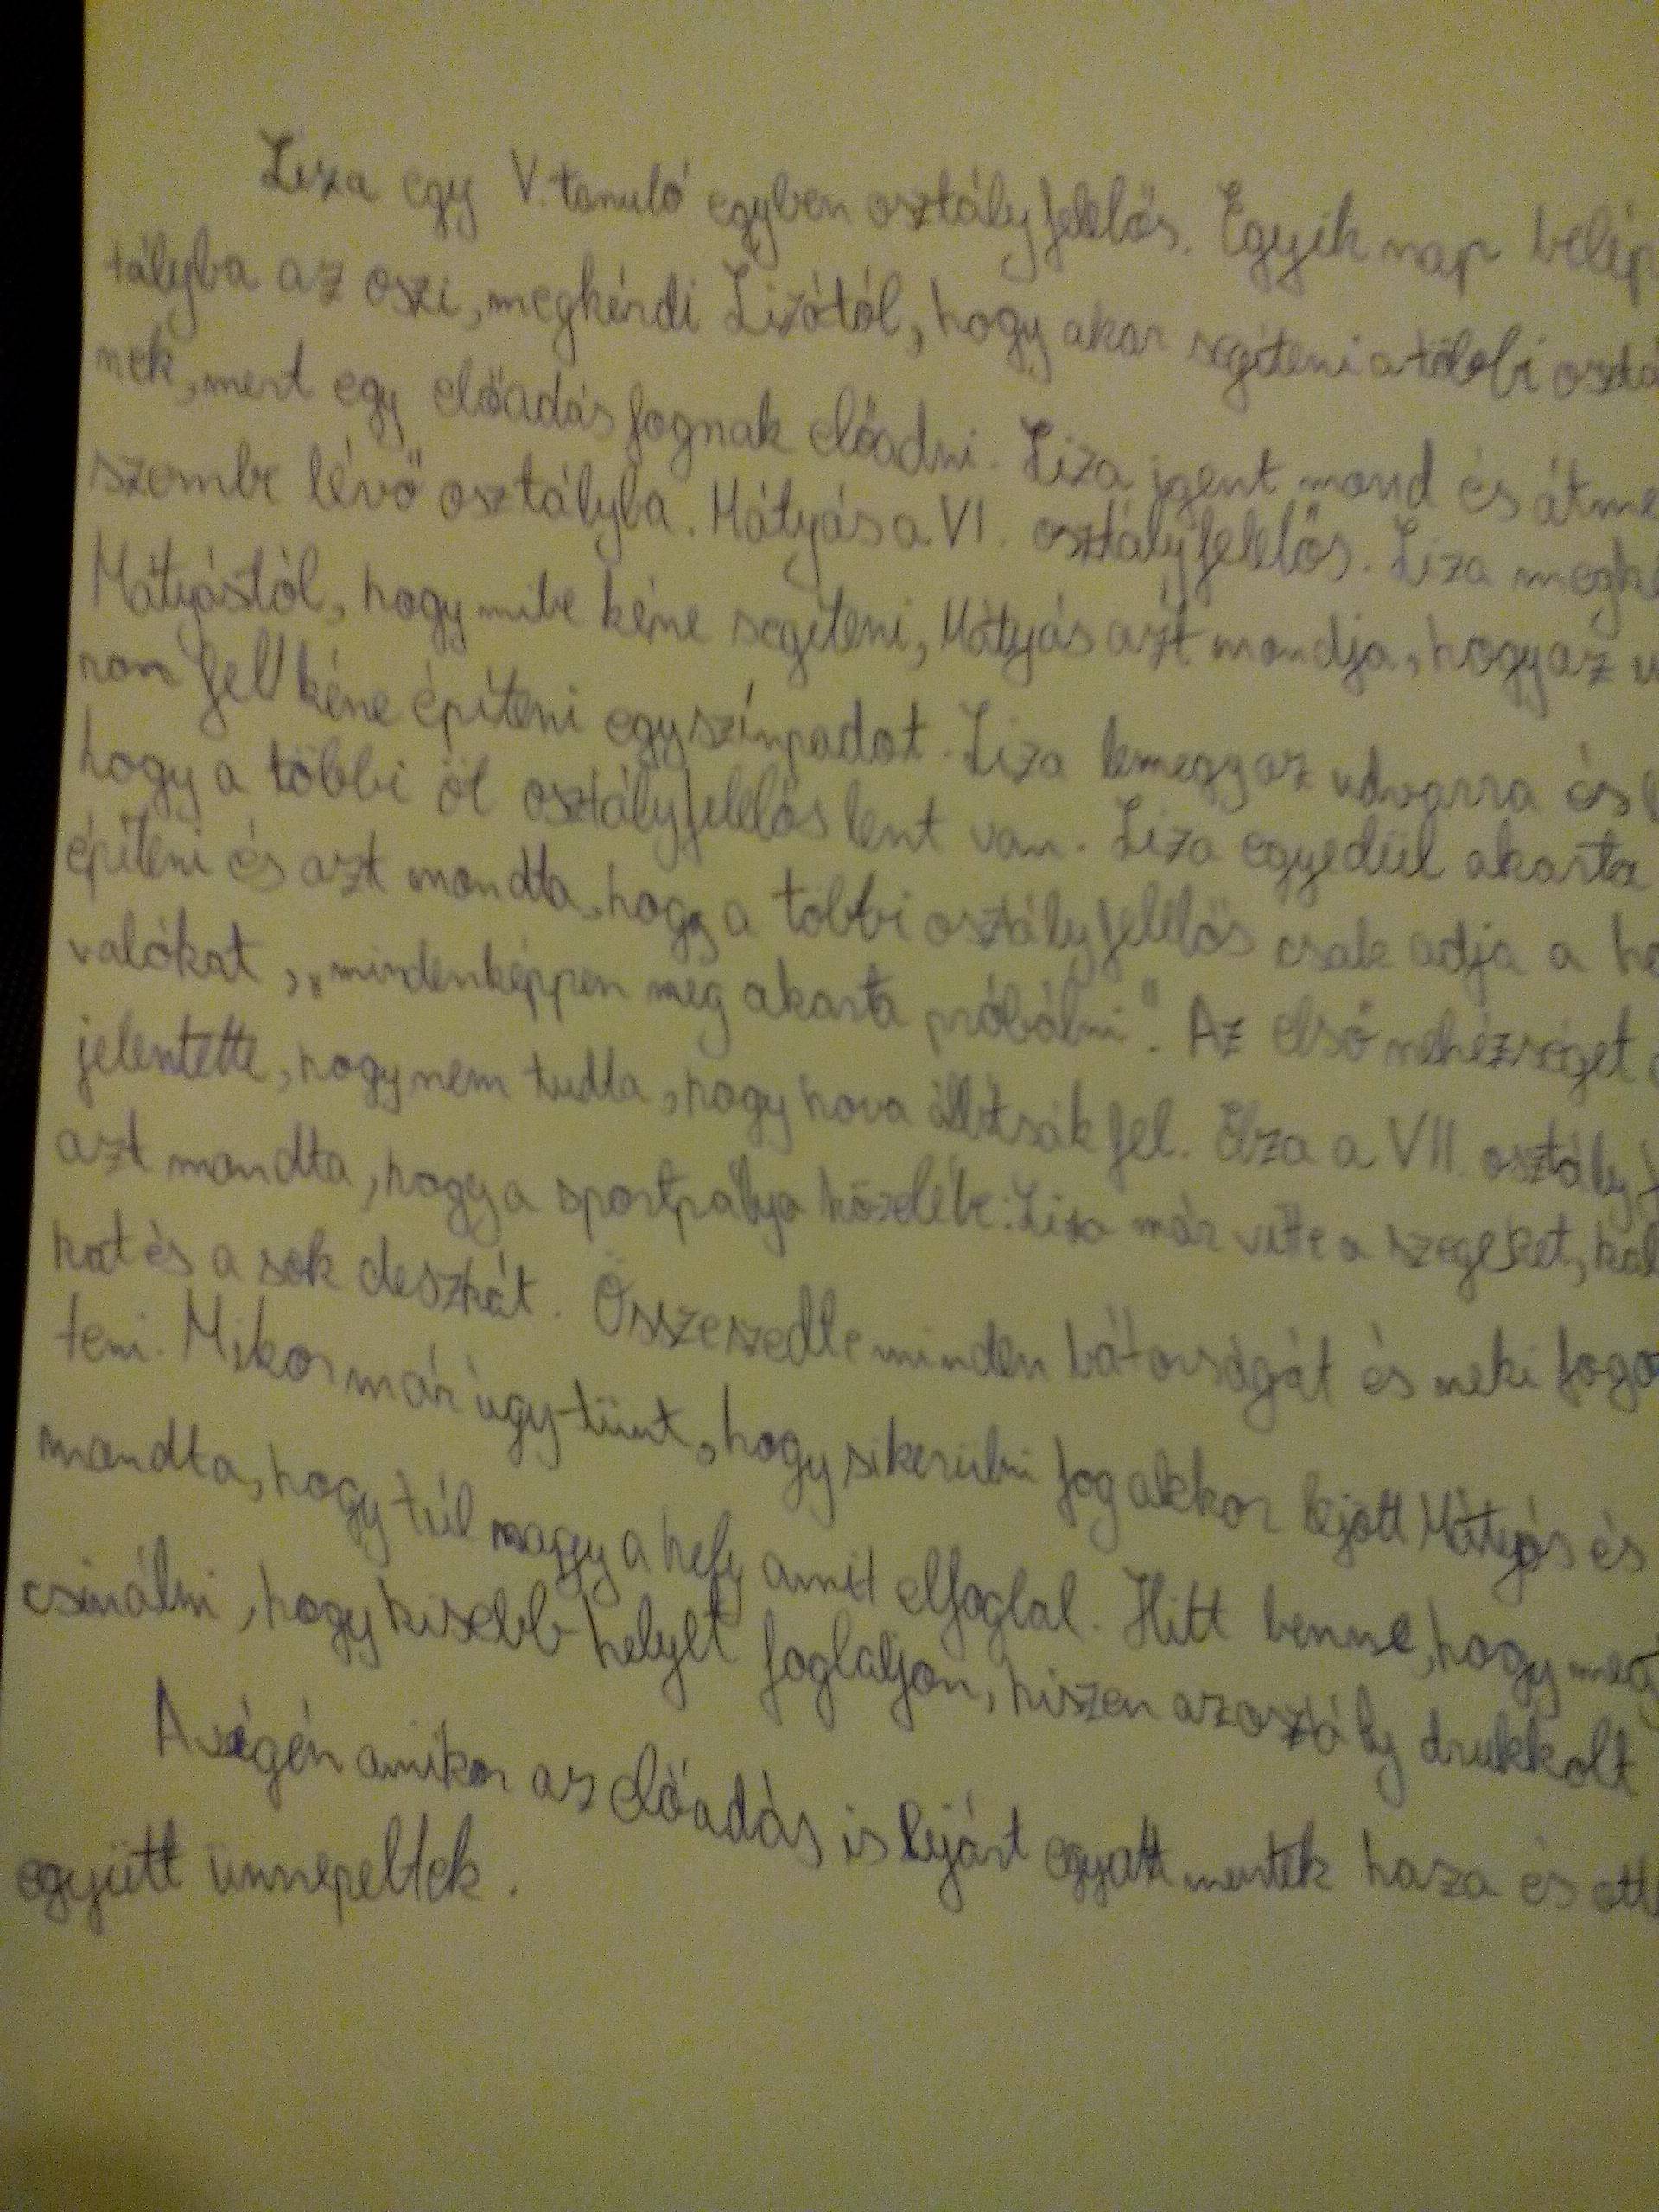 Liza egy V. tanuló egyben osztályfelelős. Egyik nap belép
tályba az oszi, megkérdi Lizától, hogy akar segíteni a többi osztá
nek, mert egy előadás fognak előadni. Liza igent mond és átme
szembe lévő osztályba. Mátyás a VI. osztályfelelős. Liza megké
Mátyástól, hogy mibe kéne segíteni, Mátyás azt mondja, hogy az u
ron fel kéne építeni egy színpadot. Liza lemegy az udvarra és l
hogy a többi öt osztályfelelős lent van. Liza egyedül akarta
építeni és azt mondta, hogy a többi osztályfelelős csak adja a ho
valókat, „mindenképpen meg akarta próbálni". Az első nehézséget
jelentette, hogy nem tudta, hogy hova állítsák fel. Elza a VII. osztály f
azt mondta, hogy a sportpálya közelébe. Liza már vitte a szegeket, kal
kat és a sok deszkát. Összeszedte minden bátorságát és neki fogo
teni. Mikor már úgy tűnt, hogy sikerülni fog akkor lejött Mátyás és
mondta, hogy túl nagy a hely amit elfoglal. Hitt benne, hogy meg
csinálni, hogy kisebb helyet foglaljon, hiszen az osztály drukkolt
A végén amikor az előadás is lejárt együtt mentek haza és ott
együtt ünnepeltek.